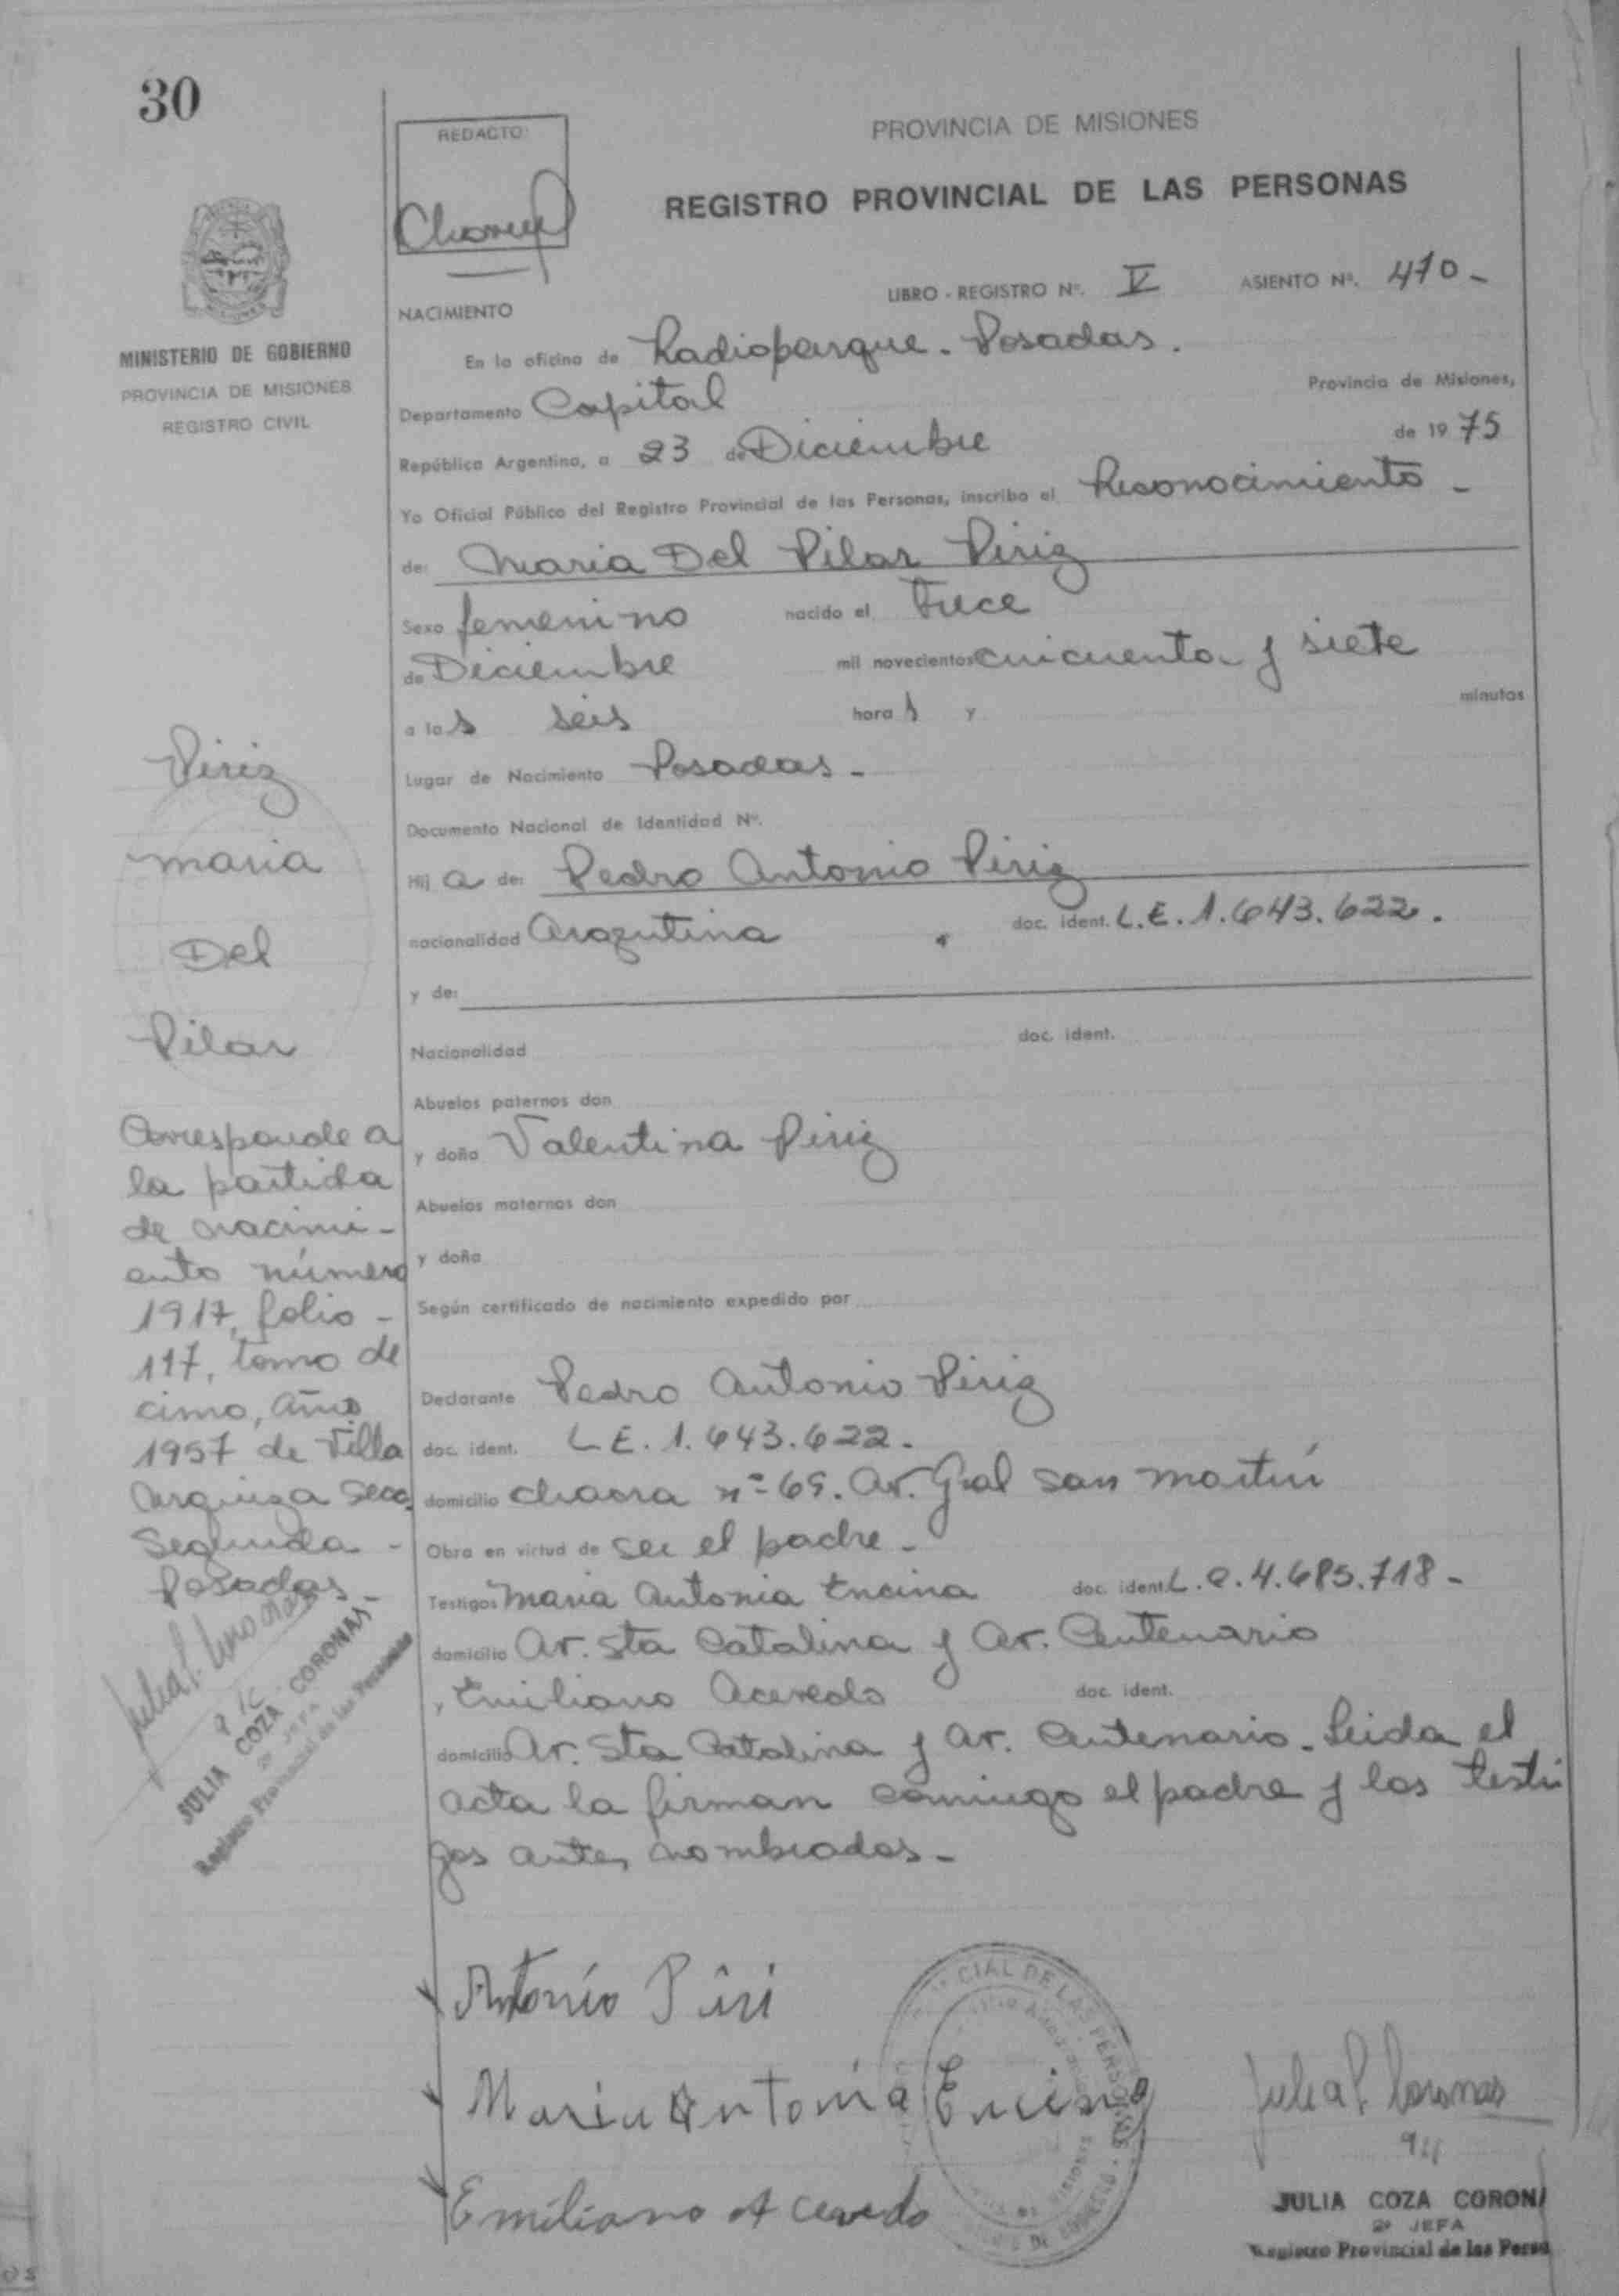 30
REDACTO:
PROVINCIA DE MISIONES
REGISTRO PROVINCIAL DE LAS PERSONAS
LIBRO - REGISTRO Nº. V ASIENTO Nº. 410 -
MINISTERIO DE GOBIERNO
PROVINCIA DE MISIONES
REGISTRO CIVIL
NACIMIENTO
En la oficina de Radioparque - Posadas.
Departamento Capital Provincia de Misiones,
República Argentina, a 23 de Diciembre de 1975
Yo Oficial Público del Registro Provincial de las Personas, inscribo el Reconocimiento -
de: Maria Del Pilar Piriz
Sexo femenino nacido el Trece
de Diciembre mil novecientos cincuenta y siete
a las seis horas y minutos
Lugar de Nacimiento Posadas -
Documento Nacional de Identidad Nº.
Hija de: Pedro Antonio Piriz
nacionalidad Argentina doc. ident. L.E. 1.643.622.
y de:
Nacionalidad doc. ident.
Abuelos paternos don
y doña Valentina Piriz
Abuelos maternos don
y doña
Según certificado de nacimiento expedido por
Declarante Pedro Antonio Piriz
doc. ident. L.E. 1.643.622.
domicilio chacra nº 69. Av. Gral San Martín
Obra en virtud de ser el padre -
Testigos Maria Antonia Encina doc. ident. L.C. 4.685.718 -
domicilio Av. Sta Catalina y Av. Centenario
y Emiliano Acevedo doc. ident.
domicilio Av. Sta Catalina y Av. Centenario - Leida el
acta la firman conmigo el padre y los testi
gos antes nombrados -
Piriz
Maria
Del
Pilar
Corresponde a
la partida
de nacimi-
ento número
1917, folio -
117, tomo de
cimo, año
1957 de Villa
Urquiza Secc.
Segunda -
Posadas -
JULIA COZA CORONAS
2º JEFA
Registro Provincial de las Personas
Antonio Piri
Maria Antonia Encina
Emiliano Acevedo
Julia C. Coronas
JULIA COZA CORONA
2º JEFA
Registro Provincial de las Perso